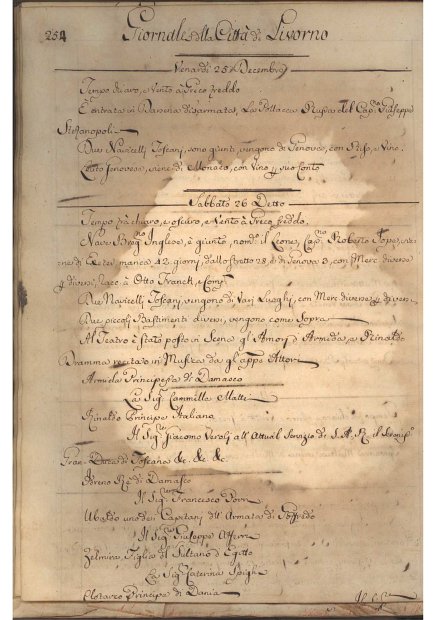 254
Giornale della Città di Livorno
Venerdì 25 Decembre
Tempo chiaro, e Vento a Greco freddo
È entrata in Darsena disarmata, La Pollacca Russa del Cap.no Giuseppe
Stefanopoli
Due Navicelli Toscani, sono giunti, vengono da Genova, con Riso, e Vino.
Leuto Genovese, viene di Monaco, con Vino p suo Conto
Sabbato 26 Detto
Tempo frà chiaro, e oscuro, e Vento a Greco freddo.
Nave Brig.no Inglese, è giunto, nom.to il Leone, Cap.no Roberto Pope, vie
ne di manca 42 giorni, dallo Stretto 28, e di Genova 3, con Merc diverse
p diversi, racc.o a Otto Franck, e Comp.
Due Navicelli Toscani, vengono di Varj Luoghi, con Merc diverse p diversi
Due piccoli Bastimenti diversi, vengono come Sopra
Al Teatro è stato posto in Scena gl'Amori d'Armida, e Rinaldo
Dramma recitato in Musica da gl'app.e Attori
Armida Principessa di Damasco
La Sig.ra Cammilla Mattei
Rinaldo Principe Italiano
Il Sig.re Giacomo Veroli all'Attual Servizio di S. A. R. il Sereniss.o
Gran-Duca di Toscana &c. &c. &c.
Ireno Re di Damasco
Il Sig.re Francesco
Ubaldo uno dei Capitani dell'Armata di Goffredo
Il Sig.re Giuseppe
Zelmira, Figlia del Sultano d'Egitto
La Sig.ra Caterina
Clotarco Principe di Dania
Il Sig.re